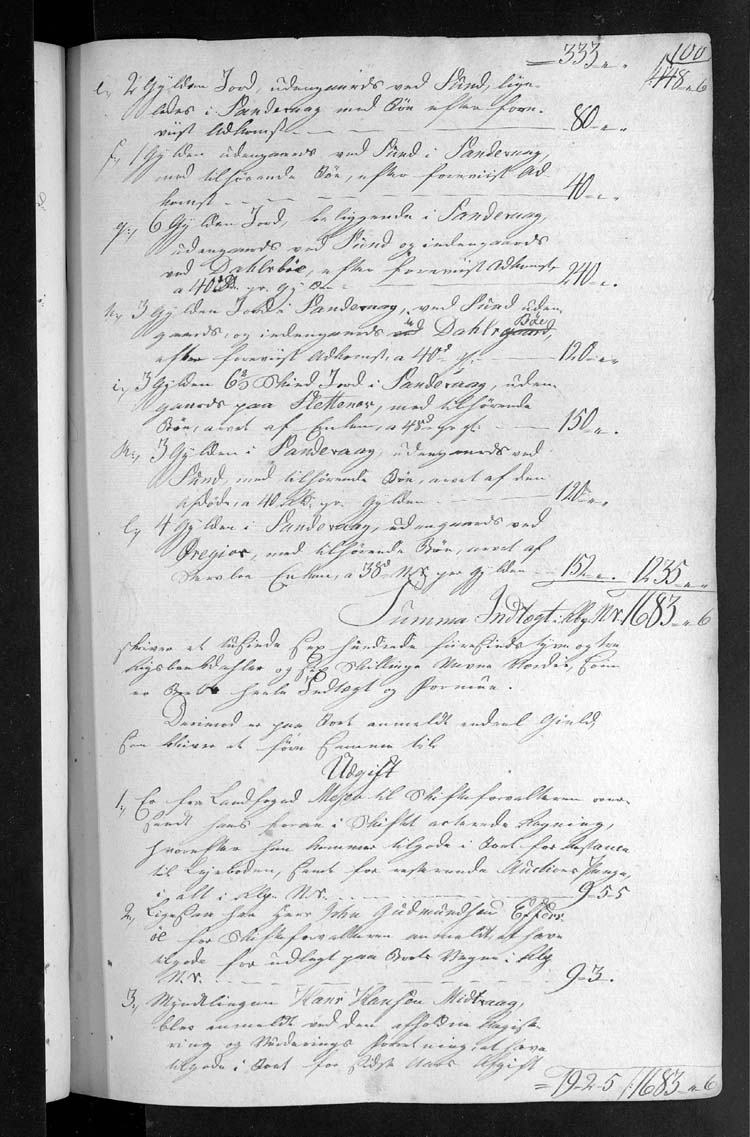 100
= 333 „ „ 448 „ 6
e., 2 Gylden Jord, udengaards ved Sund, lige-
ledes i Sandevaag med Bøe efter fore-
viist Adkomst — — — 80 „ „
f., 1 Gylden udengaards ved Sund i Sandevaag,
med tilhørende Bøe, efter foreviist Ad
komst — — — 40 „ „
g., 6 Gylden Jord, beliggende i Sandevaag,
udengaards ved Sund og indengaards
ved Dahlsbøe, efter foreviist Adkomst
a 40 pr. Gylden — 240 „ „
h., 3 Gylden Jord i Sandevaag, ved Sund uden
gaards, og indengaards Dahls Bøe,
efter foreviist Adkomst, a 40 — 120 „ „
i., 3 Gylden 6 Skind Jord i Sandevaag, uden
gaards paa Slettenes, med tilhørende
Bøe, arvet af Enken, a 45 — 150 „ „
k., 3 Gylden i Sandevaag, udengaards ved
Sund, med tilhørende Bøe, arvet af den
afdøde, a 40 pr. Gylden — 120 „ „
l., 4 Gylden i Sandevaag, udengaards ved
med tilhørende Bøe, arvet af
Enken, a 38 per Gylden — 152 „ „ 1235 „ „
Summa Indtægt i Rbp Nr. 1683 „ 6
skriver et tusinde sex hundrede fiiresindstyve og tre
Rigsbankdahler og sex Skillinger Navne Værdie, som
er Boets heele Indtægt og Formue.
Derimod er paa Boet anmeldt endeel Gield,
som bliver at føre hemme til
Udgift
1., Er fra Landfoged til Skifteforvalteren over-
sendt hans foran i Skiftet Regning,
hvorefter han kommer tilgode i Boet for Restance
til Leieboden, samt for resterende Auctions Penge,
i alt i Rbp. N.V. — — 9-5-5
2., Ligesom har Herr John Gudmundsen Effers
öe for Skifteforvalteren anmeldt, at have
tilgode for udlagt paa Boets Vegne i Rbp
N.V. — — 9-3 „
3., Myndlingen Hans Hansen Midtvaag,
blev anmeldt ved den afholdne Registe
ring og Vurderings Forretning, at have
tilgode i Boet for sidste Aars Udgift
= 19-2-5 /: 1683 „ 6